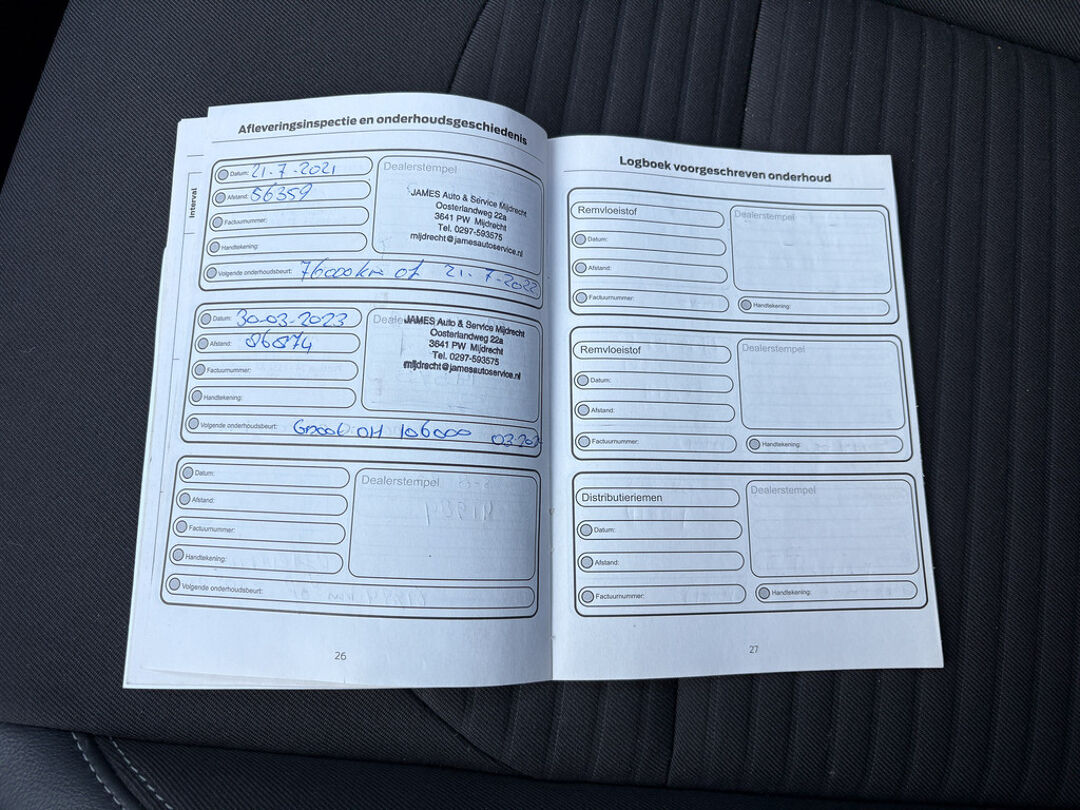 Afleveringsinspectie en onderhoudsgeschiedenis
Interval
Datum: 21-7-2021
Afstand: 56359
Factuurnummer:
Handtekening:
Volgende onderhoudsbeurt: 76000km of 21-7-2022
Dealerstempel
JAMES Auto & Service Mijdrecht
Oosterlandweg 22a
3641 PW Mijdrecht
Tel. 0297-593575
mijdrecht@jamesautoservice.nl
Datum: 30-03-2023
Afstand: 86874
Factuurnummer:
Handtekening:
Volgende onderhoudsbeurt: Groot OH 106000 03-202
JAMES Auto & Service Mijdrecht
Oosterlandweg 22a
3641 PW Mijdrecht
Tel. 0297-593575
mijdrecht@jamesautoservice.nl
Datum:
Afstand:
Factuurnummer:
Handtekening:
Volgende onderhoudsbeurt:
Dealerstempel
26
Logboek voorgeschreven onderhoud
Remvloeistof
Datum:
Afstand:
Factuurnummer:
Dealerstempel
Handtekening:
Remvloeistof
Datum:
Afstand:
Factuurnummer:
Dealerstempel
Handtekening:
Distributieriemen
Datum:
Afstand:
Factuurnummer:
Dealerstempel
Handtekening:
27